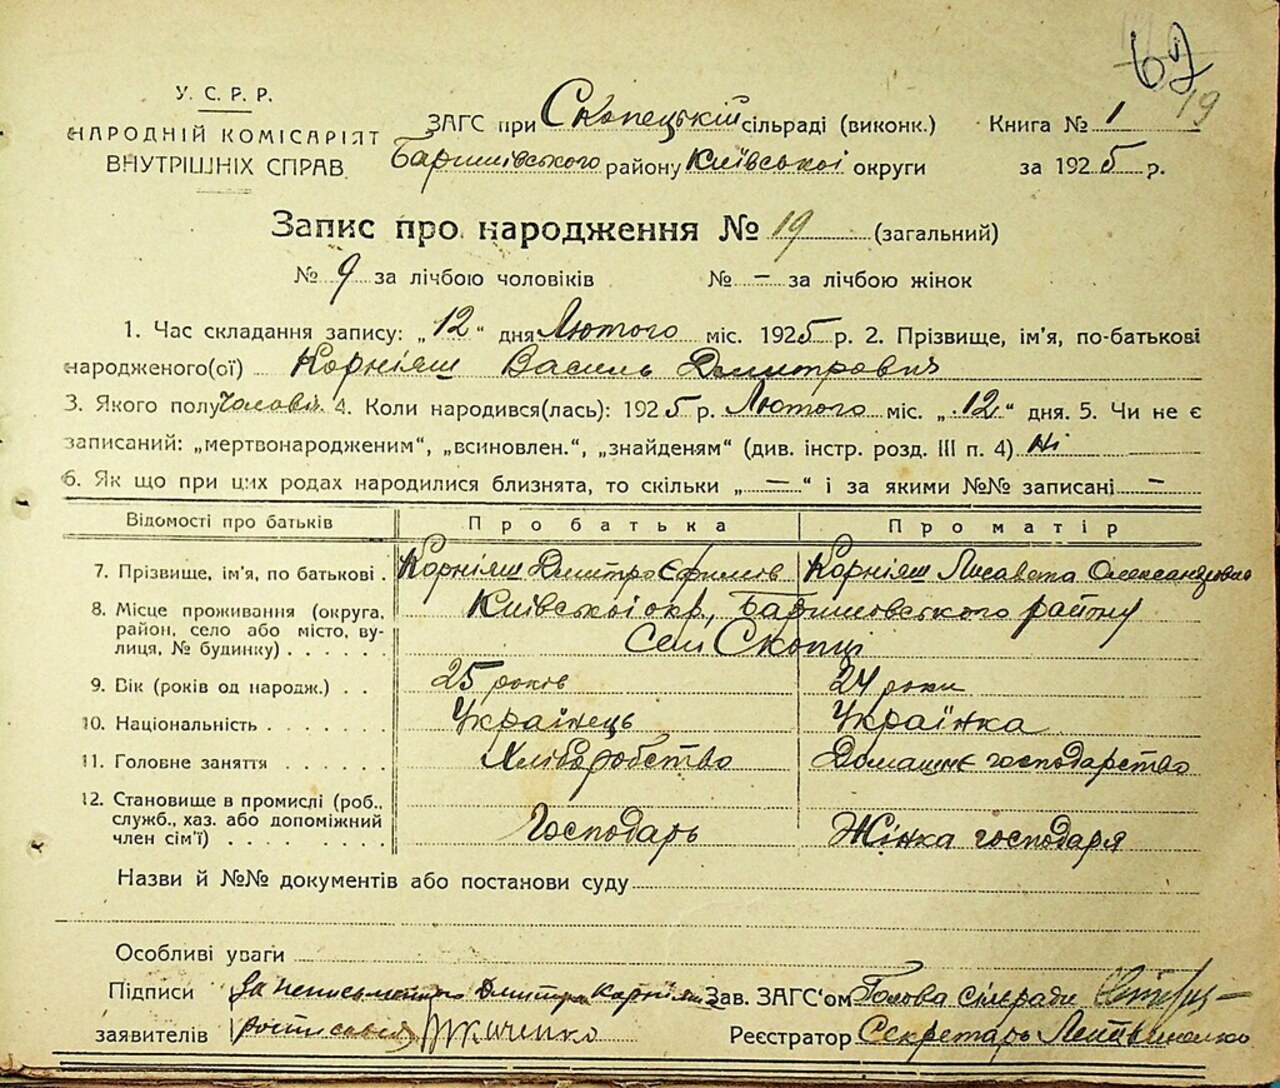 67
19
У. С. Р. Р.
НАРОДНІЙ КОМІСАРІЯТ
ВНУТРІШНІХ СПРАВ
ЗАГС при Скопецькій сільраді (виконк.) Книга № 1
Баришівського району Київської округи за 1925 р.
Запис про народження № 19 (загальний)
№ 9 за лічбою чоловіків № — за лічбою жінок
1. Час складання запису: „12“ дня Лютого міс. 1925 р. 2. Прізвище, ім'я, по-батькові
народженого(ої) Корніяш Василь Дмитрович
3. Якого полу Чоловіч. 4. Коли народився(лась): 1925 р. Лютого міс. „12“ дня. 5. Чи не є
записаний: „мертвонародженим“, „всиновлен.“, „знайденям“ (див. інстр. розд. III п. 4) Ні
6. Як що при цих родах народилися близнята, то скільки „—“ і за якими №№ записані —
Відомості про батьків Про батька Про матір
7. Прізвище, ім'я, по батькові . Корніяш Дмитро Єфимов Корніяш Лисавета Олександровна
8. Місце проживання (округа, район, село або місто, вулиця, № будинку) . . . . . . Київської окр., Баришовського району
Селі Скопці
9. Вік (років од народж.) . . 25 років 24 роки
10. Національність . . . . . . . Українець Українка
11. Головне заняття . . . . . . Хліборобство Домашнє господарство
12. Становище в промислі (роб., служб., хаз. або допоміжний член сім'ї) . . . . . . . . Господарь Жінка господаря
Назви й №№ документів або постанови суду
Особливі уваги
Підписи За неписьменного Дмитра Корніяш Зав. ЗАГС'ом Голова сільради
заявителів росписався Ткаченко Реєстратор Секретарь